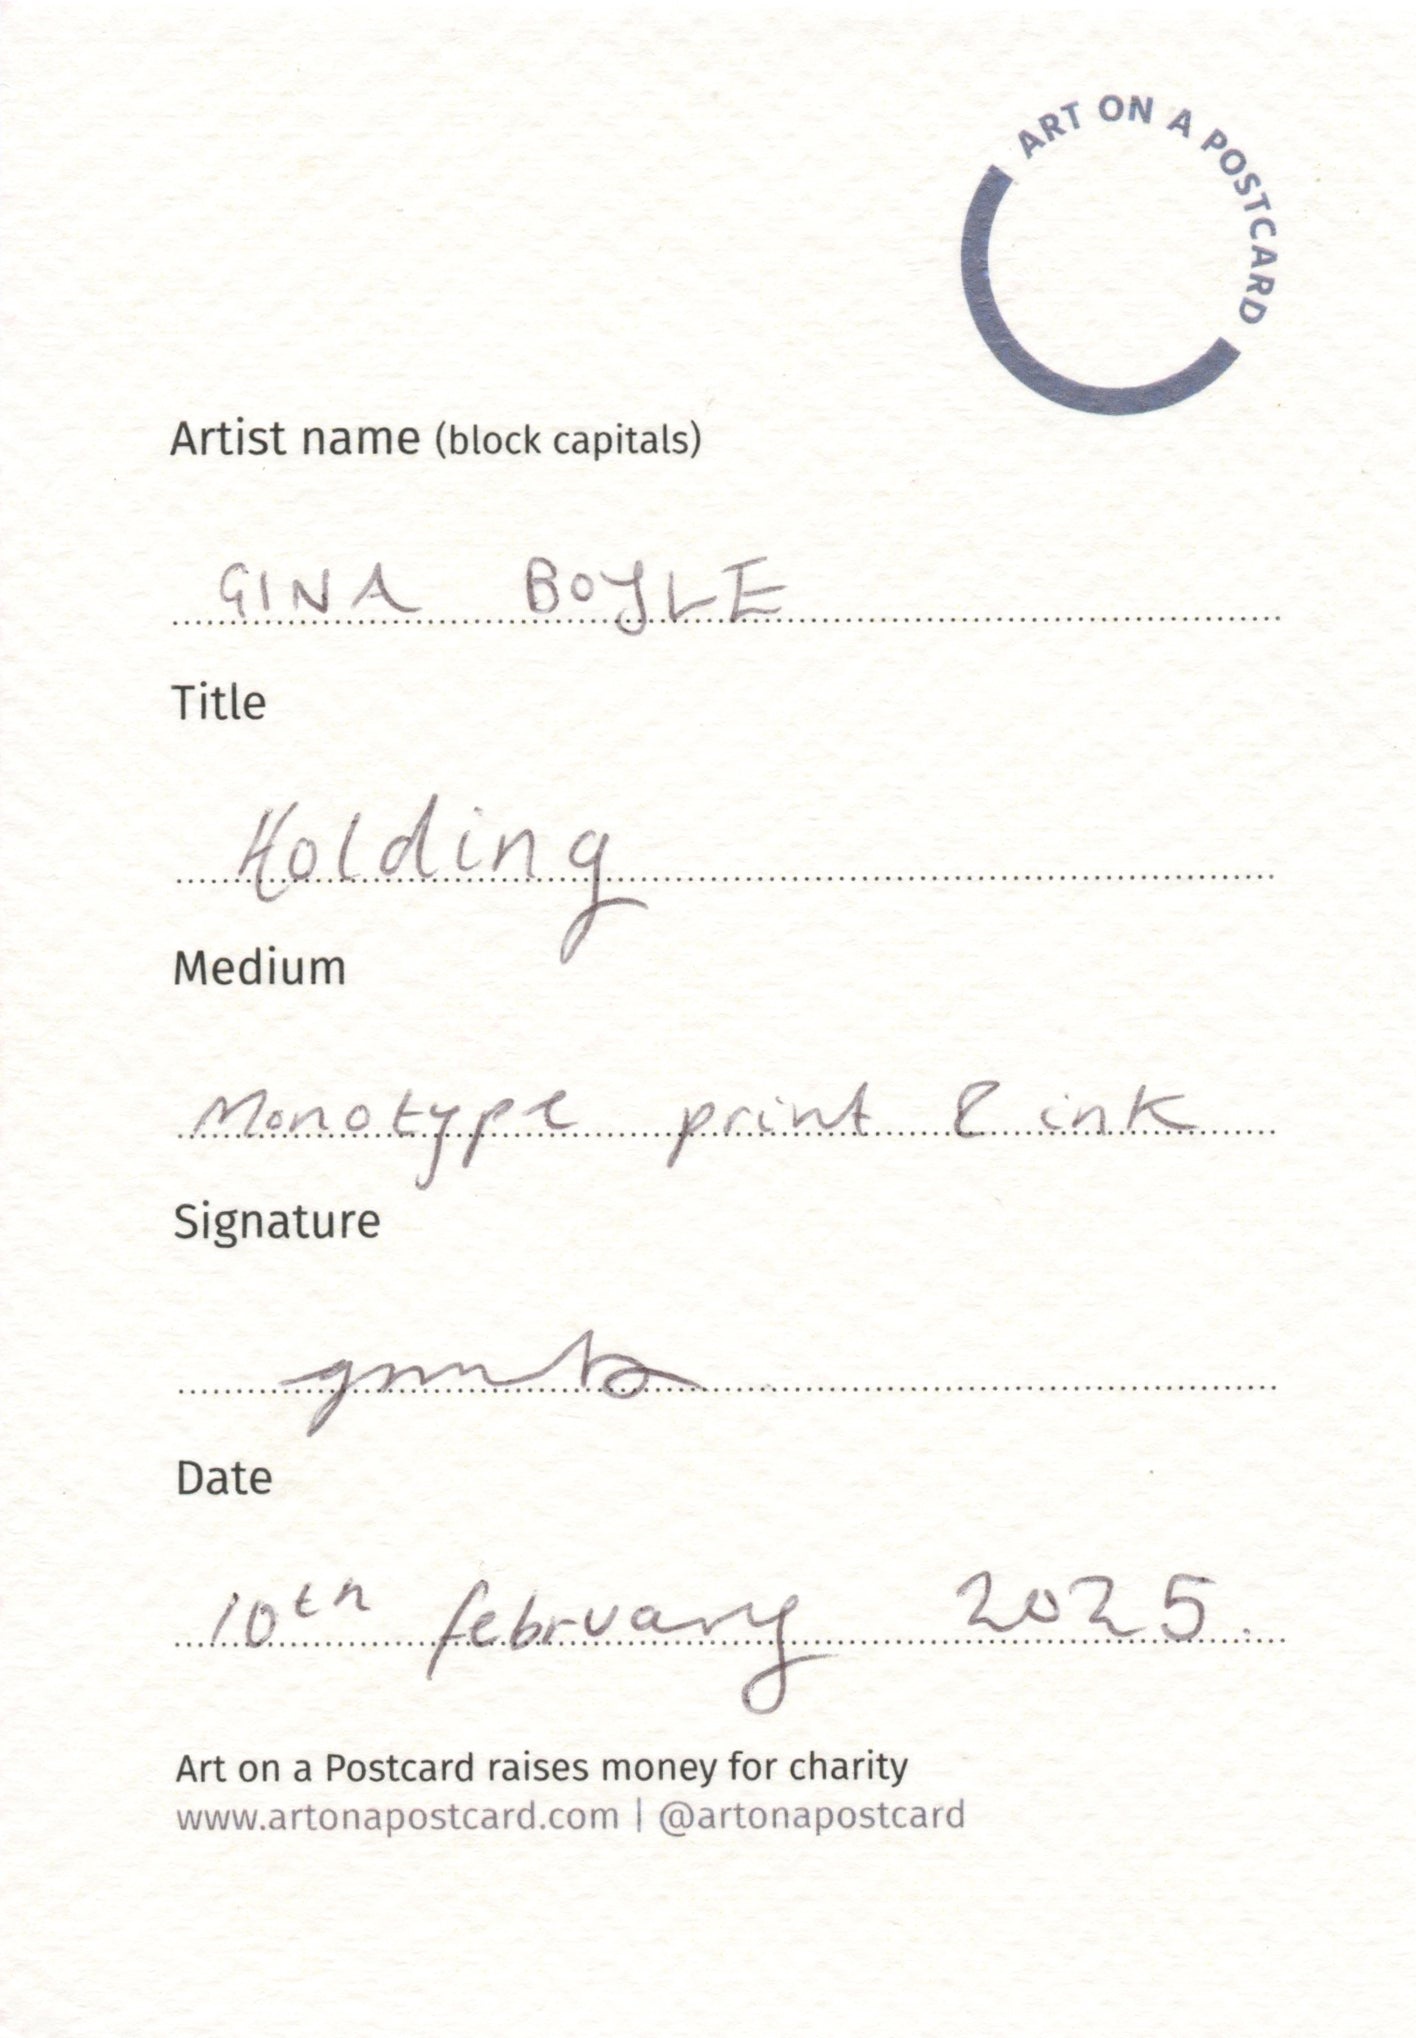 ART ON A POSTCARD
Artist name (block capitals)
GINA BOYLE
Title
Holding
Medium
Monotype print & ink
Signature
Date
10th february 2025.
Art on a Postcard raises money for charity
www.artonapostcard.com | @artonapostcard